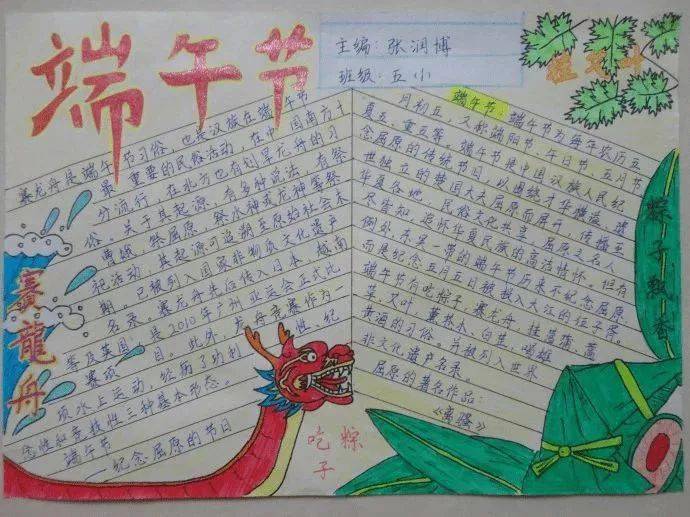 端午节
主编:张润博
班级:五小
挂艾叶
赛龙舟是端午节习俗,也是汉族在端午节
最重要的民俗活动,在中国南方十
分流行,在北方也有划旱龙舟的习
俗。关于其起源,有多种说法,有祭
曹娥,祭屈原,祭水神或龙神等祭
祀活动,其起源可追溯至原始社会末
期。已被列入国家非物质文化遗产
名录。赛龙舟先后传入日本、越南
等及英国,是2010年广州亚运会正式比
赛项目。此外,龙舟竞赛作为一
项水上运动,经历了功利性、纪
念性和竞技性三种基本形态。
端午节
纪念屈原的节日
赛龍舟
端午节:端午节为每年农历五
月初五,又称端阳节,午日节,五月节
夏五、重五等。端午节是中国汉族人民纪
念屈原的传统节日,以围绕才华横溢、遗
世独立的楚国大夫屈原而展开,传播至
华夏各地,民俗文化共享,屈原之名人
尽皆知,追怀华夏民族的高洁情怀。但有
例外,东吴一带的端午节历来不纪念屈原
而是纪念五月五日被投入大江的伍子胥。
端午节有吃粽子,赛龙舟,挂菖蒲、蒿
草、艾叶,薰苍术、白芷,喝雄
黄酒的习俗。并被列入世界
非文化遗产名录。
屈原的著名作品:
《离骚》
粽子飘香
吃粽
子